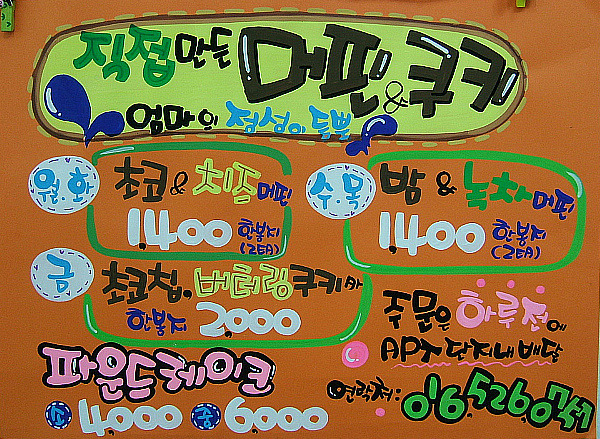 직접 만든 머핀 & 쿠키
엄마의 정성이 듬뿍
월.화 초코 & 치즈 머핀
1,400 한봉지
(2EA)
수.목 밤 & 녹차 머핀
1,400 한봉지
(2EA)
금 초코칩, 버터링 쿠키
한봉지 2,000
주문은 하루전에
APT 단지내 배달
파운드케이크
소 4,000 중 6,000
연락처: 016.526.